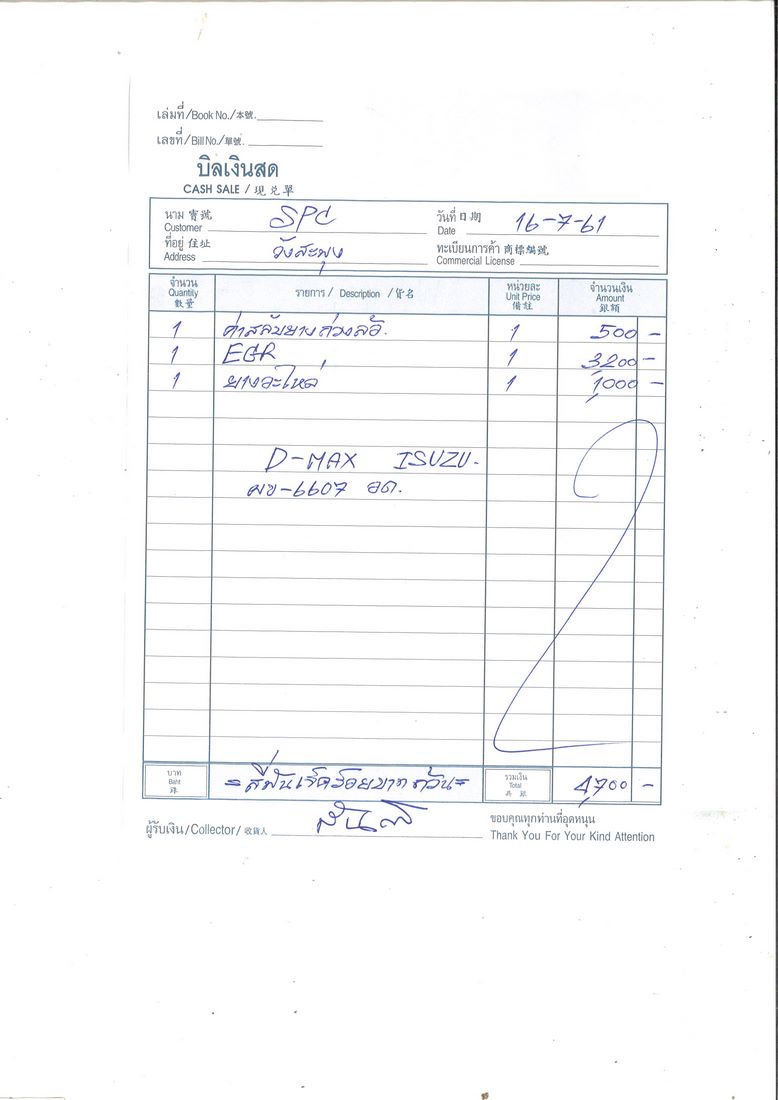 เล่มที่/Book No./本號.
เลขที่/Bill No./單號.
บิลเงินสด
CASH SALE / 現兑單
นาม 寶號 Customer SPC วันที่ 日期 Date 16-7-61
ที่อยู่ 住址 Address วังสะพุง ทะเบียนการค้า 商標編號 Commercial License
จำนวน Quantity 數量 รายการ / Description / 貨名 หน่วยละ Unit Price 備註 จำนวนเงิน Amount 銀額
1 ค่าสลับยางถ่วงล้อ. 1 500 -
1 EGR 1 3,200 -
1 ยางอะไหล่ 1 1,000 -
D-MAX ISUZU.
ผข-6607 อด.
บาท Baht 銖 =สี่พันเจ็ดร้อยบาทถ้วน= รวมเงิน Total 共銀 4,700 -
ผู้รับเงิน/Collector/收貨人 ขอบคุณทุกท่านที่อุดหนุน
Thank You For Your Kind Attention